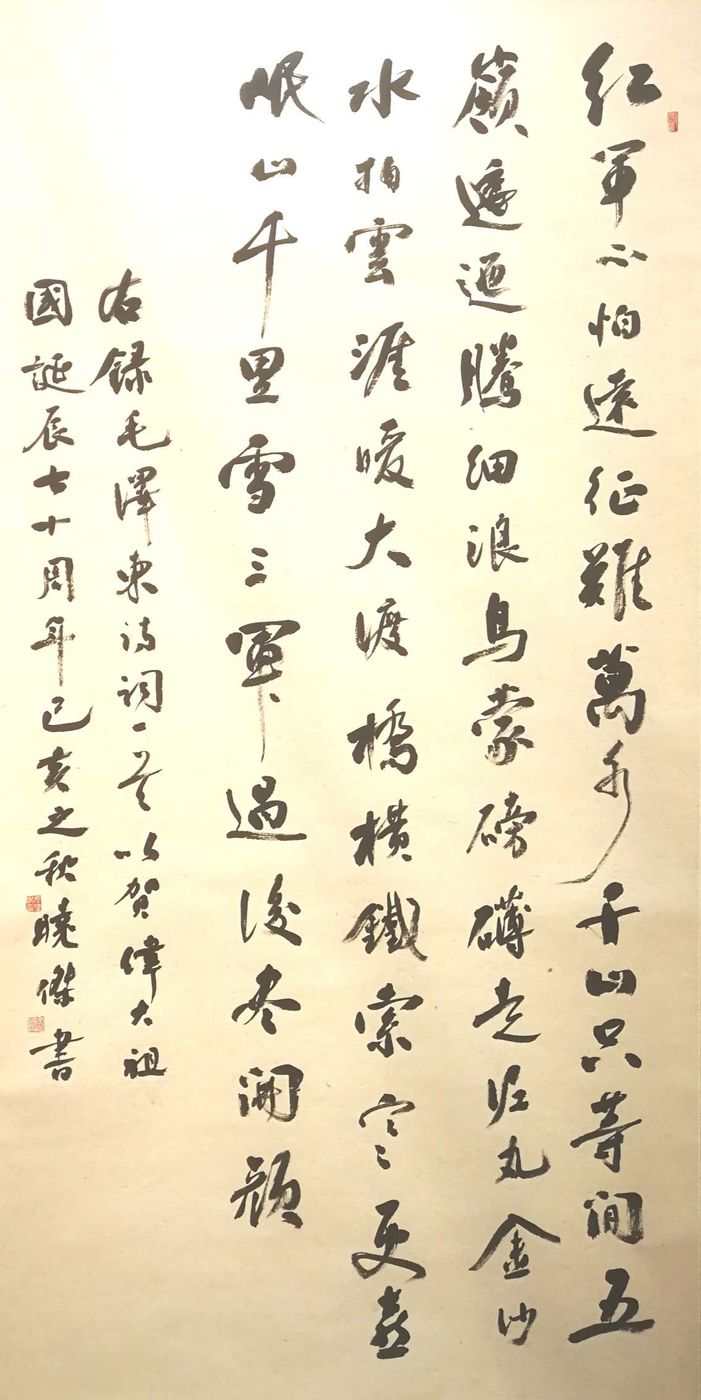 紅軍不怕遠征難萬水千山只等間五
嶺逶迤騰細浪烏蒙磅礴走泥丸金沙
水拍雲涯暖大渡橋橫鐵索寒更喜
岷山千里雪三軍過後尽開顏
右録毛澤東詩詞一首以賀偉大祖
國誕辰七十周年己亥之秋曉傑書